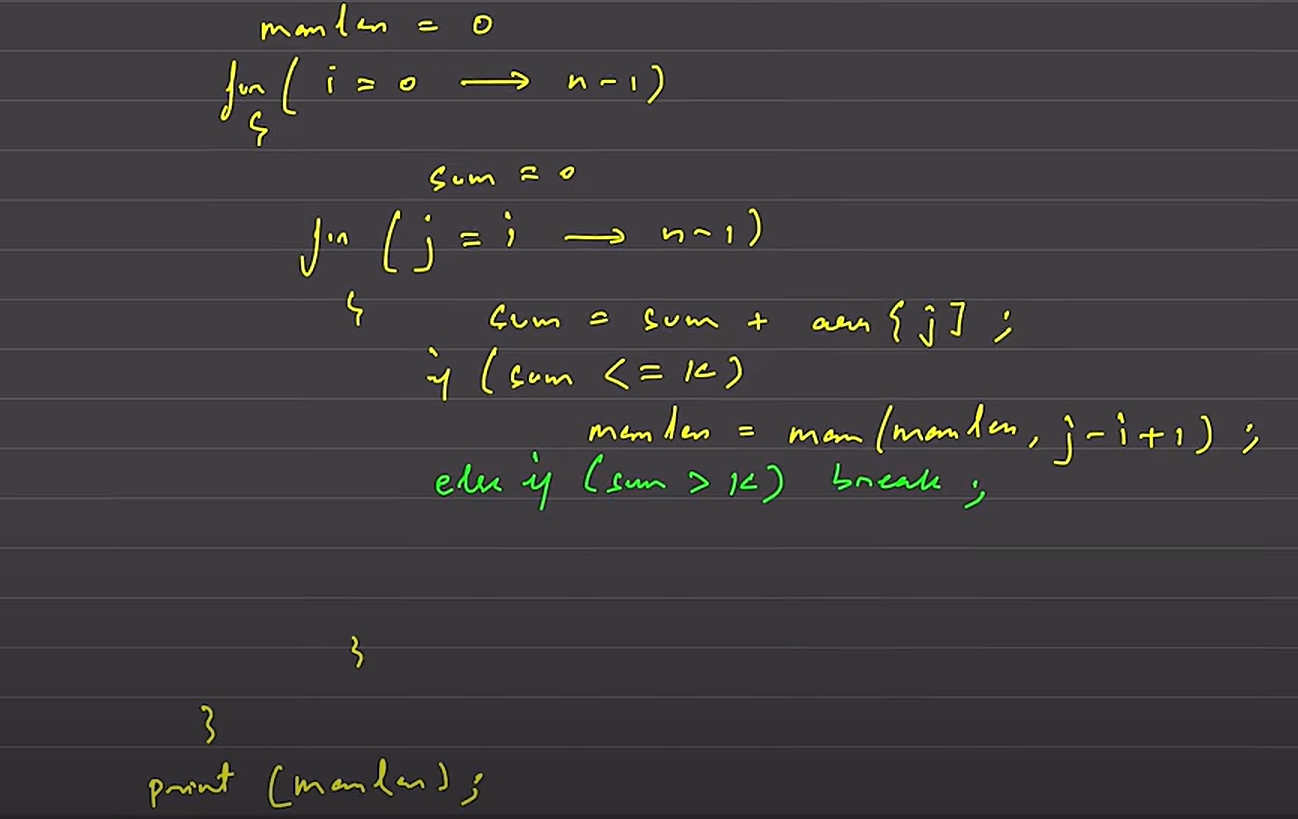 maxlen = 0
for ( i = 0 → n-1)
{
sum = 0
for ( j = i → n-1)
{ sum = sum + arr [ j ] ;
if (sum <= k)
maxlen = max (maxlen, j-i+1) ;
else if (sum > k) break ;
}
}
print (maxlen) ;